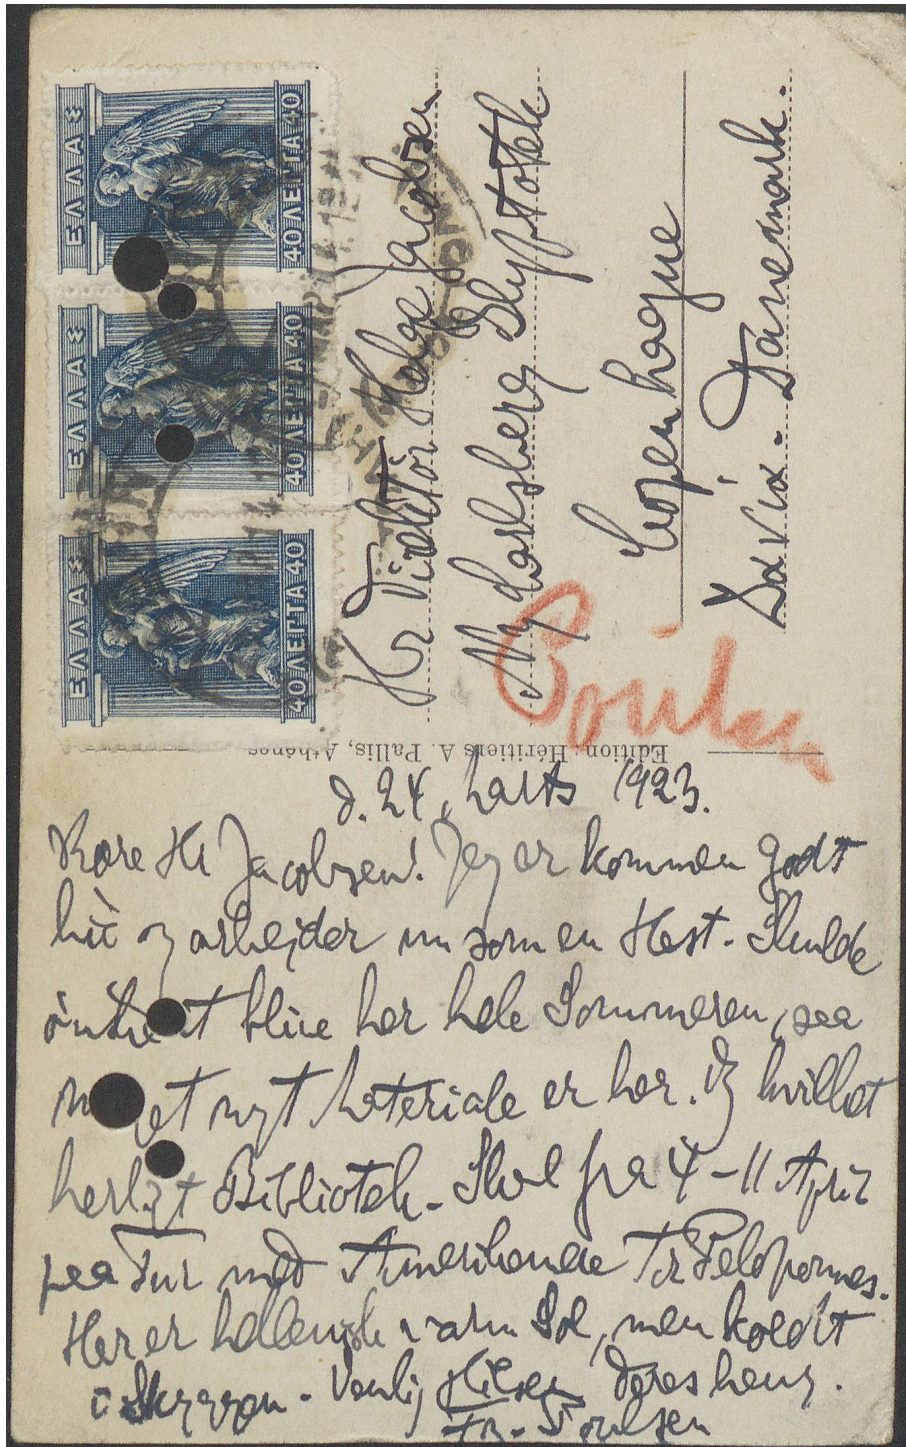 ΕΛΛΑΣ
40 ΛΕΠΤΑ 40
ΕΛΛΑΣ
40 ΛΕΠΤΑ 40
ΕΛΛΑΣ
40 ΛΕΠΤΑ 40
Hr Direktör Helge Jacobsen
Ny Carlsberg Glyptotek
Copenhague
Δανία - Danemark.
Poulsen
Edition: Héritiers A. Pallis, Athènes
d. 24 Marts 1923.
Kære Hr Jacobsen! Jeg er kommen godt
hit og arbejder nu som en Hest. Skulde
önske at blive her hele Sommeren, saa
meget nyt Materiale er her. Og hvilket
herligt Bibliotek. Skal fra 4-11 April
paa Tur med Amerikanere Til Peloponnes.
Her er hellensk varm Sol, men koldt
i Skyggen. Venlig Hilsen Deres heng.
Fr. Poulsen